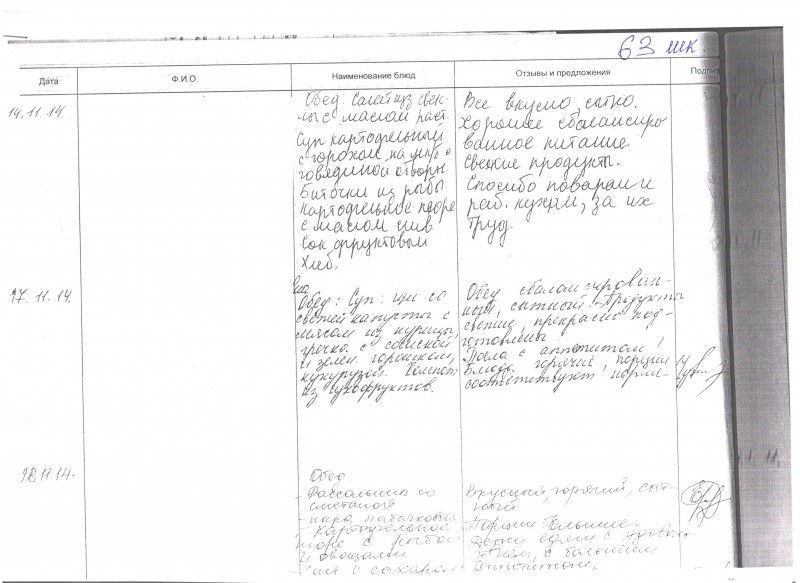 63 шк.
Дата Ф.И.О. Наименование блюд Отзывы и предложения Подпи
14.11.14
Обед: Салат из свек-
лы с маслом раст.
Суп картофельный
с горохом на мяс о
говядиной отворы
Биточки из рыбы
картофельное пюре
с маслом слив
Сок фруктовый
Хлеб.
Все вкусно, сытно.
Хорошее сбалансиро
ванное питание
Свежие продукты.
Спосибо поварам и
раб. кухни, за их
труд.
17.11.14.
Обед: Суп: щи со
свежей капусты с
мясом из курицы,
гречка с сосиской
и зелен. горошком,
кукурузой. Компот
из сухофруктов.
Обед сбалансирован-
ный, сытный. Продукты
свежие, прекрасно под-
готовлены.
Поела с аппетитом,
Блюда горячие, порции
соответствуют норме-
18.11.14.
Обед:
- Рассольник со
сметаной
- картофельное
пюре с рыбой
и овощами
- чай с сахаром
Вкусный, горячий, сыт-
ный
Порции большие.
Дети едят с удоволь
с большим
аппетитом.